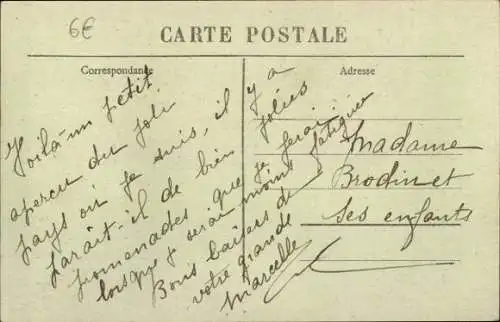 6€
CARTE POSTALE
Correspondance
Adresse
Voilà un petit
aperçu du joli
pays où je suis, il y a
paraît-il de bien jolies
promenades que je ferai
lorsque je serai moins fatiguée
Bons baisers de
votre grande
Marcelle
Madame
Brodin et
Ses enfants